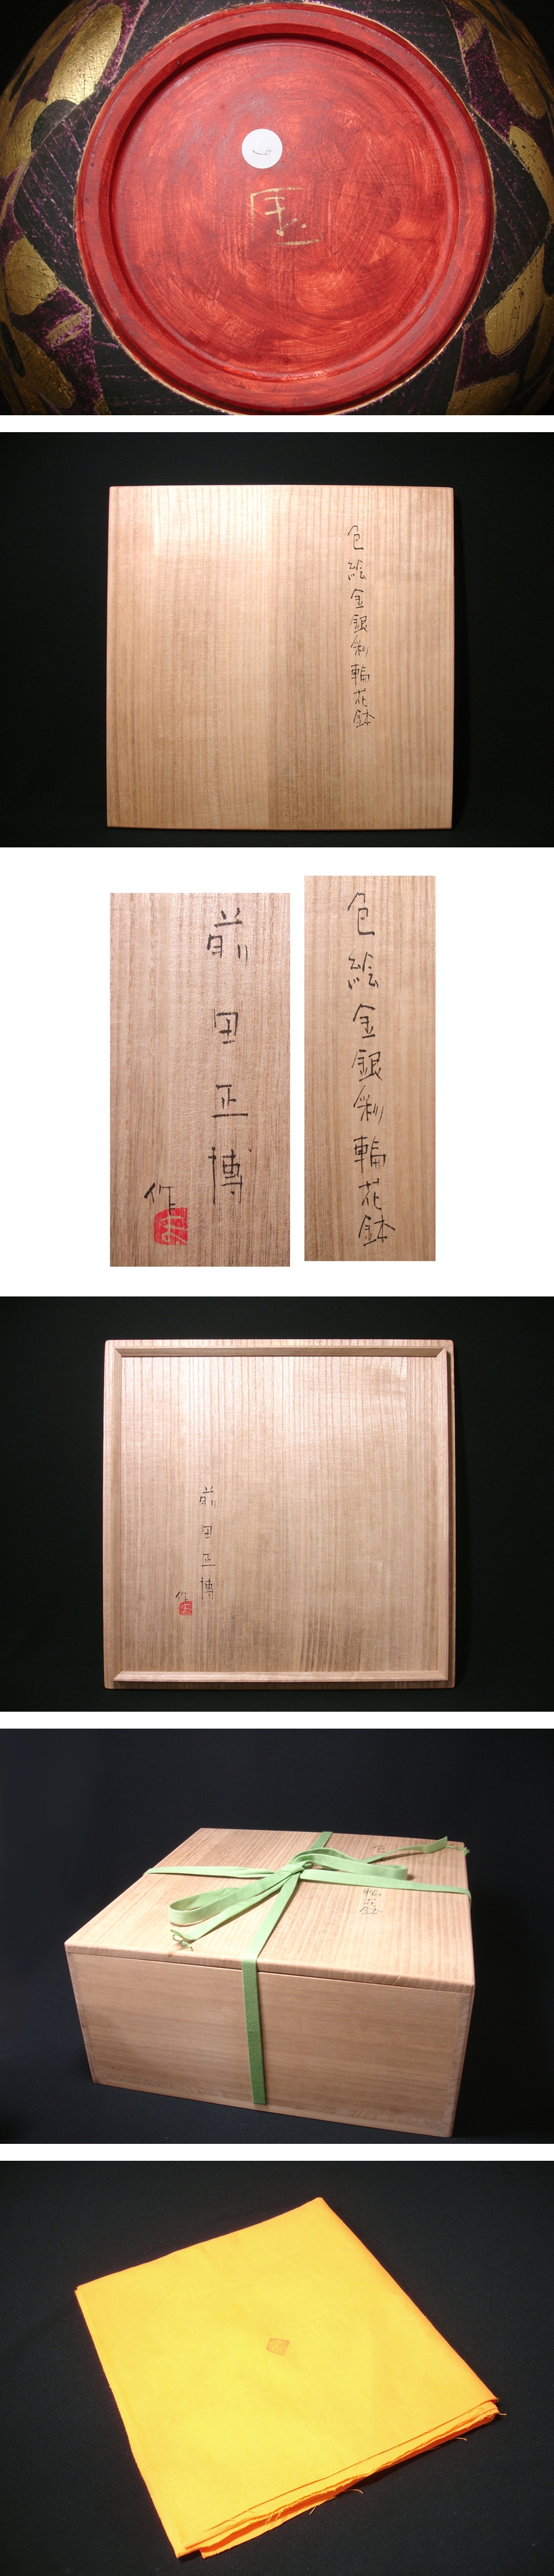 色絵金銀彩輪花鉢
前田正博
作
色絵金銀彩輪花鉢
前田正博
作
輪花鉢